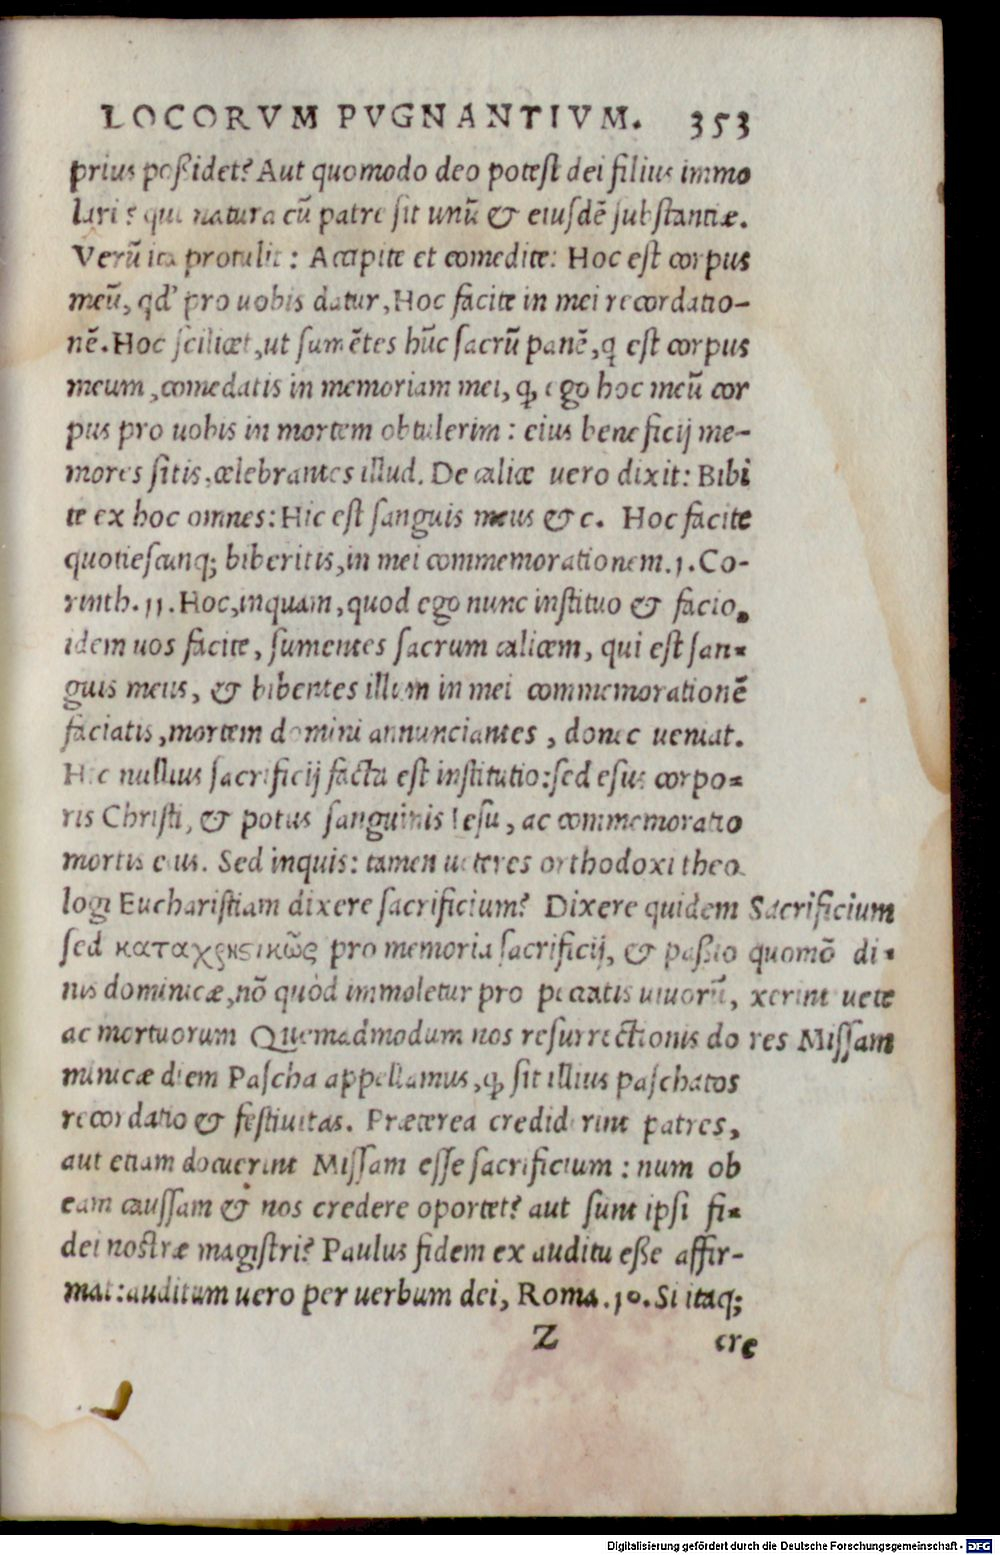 LOCORVM PVGNANTIVM. 353
prius poßidet? Aut quomodo deo potest dei filius immo
lari? qui natura cũ patre sit unũ & eiusdẽ substantiæ.
Verũ ita protulit: Accipite et comedite: Hoc est corpus
meũ, qd' pro uobis datur, Hoc facite in mei recordatio-
nẽ. Hoc scilicet, ut sumẽtes hũc sacrũ panẽ, q est corpus
meum, comedatis in memoriam mei, q, ego hoc meũ cor
pus pro uobis in mortem obtulerim: eius beneficij me-
mores sitis, celebrantes illud. De calice uero dixit: Bibi
te ex hoc omnes: Hic est sanguis meus &c. Hoc facite
quotiescunq; biberitis, in mei commemorationem. 1. Co-
rinth. 11. Hoc, inquam, quod ego nunc instituo & facio,
idem uos facite, sumentes sacrum calicem, qui est san-
guis meus, & bibentes illum in mei commemorationẽ
faciatis, mortem domini annunciantes, donec ueniat.
Hic nullius sacrificij facta est institutio: sed esus corpo-
ris Christi, & potus sanguinis Iesu, ac commemoratio
mortis eius. Sed inquis: tamen ueteres orthodoxi theo
logi Eucharistiam dixere sacrificium? Dixere quidem
sed καταχρηστικῶς pro memoria sacrificij, & passio
nis dominicæ, nõ quòd immoletur pro peccatis uiuorũ,
ac mortuorum Quemadmodum nos resurrectionis do
minicæ diem Pascha appellamus, q, sit illius paschatos
recordatio & festiuitas. Præterea crediderint patres,
aut etiam docuerint Missam esse sacrificium: num ob
eam caussam & nos credere oportet? aut sunt ipsi fi-
dei nostræ magistri? Paulus fidem ex auditu eße affir-
mat: auditum uero per uerbum dei, Roma. 10. Si itaq;
Z cre
Sacrificium
quomõ di-
xerint uete
res Missam
Digitalisierung gefördert durch die Deutsche Forschungsgemeinschaft - DFG